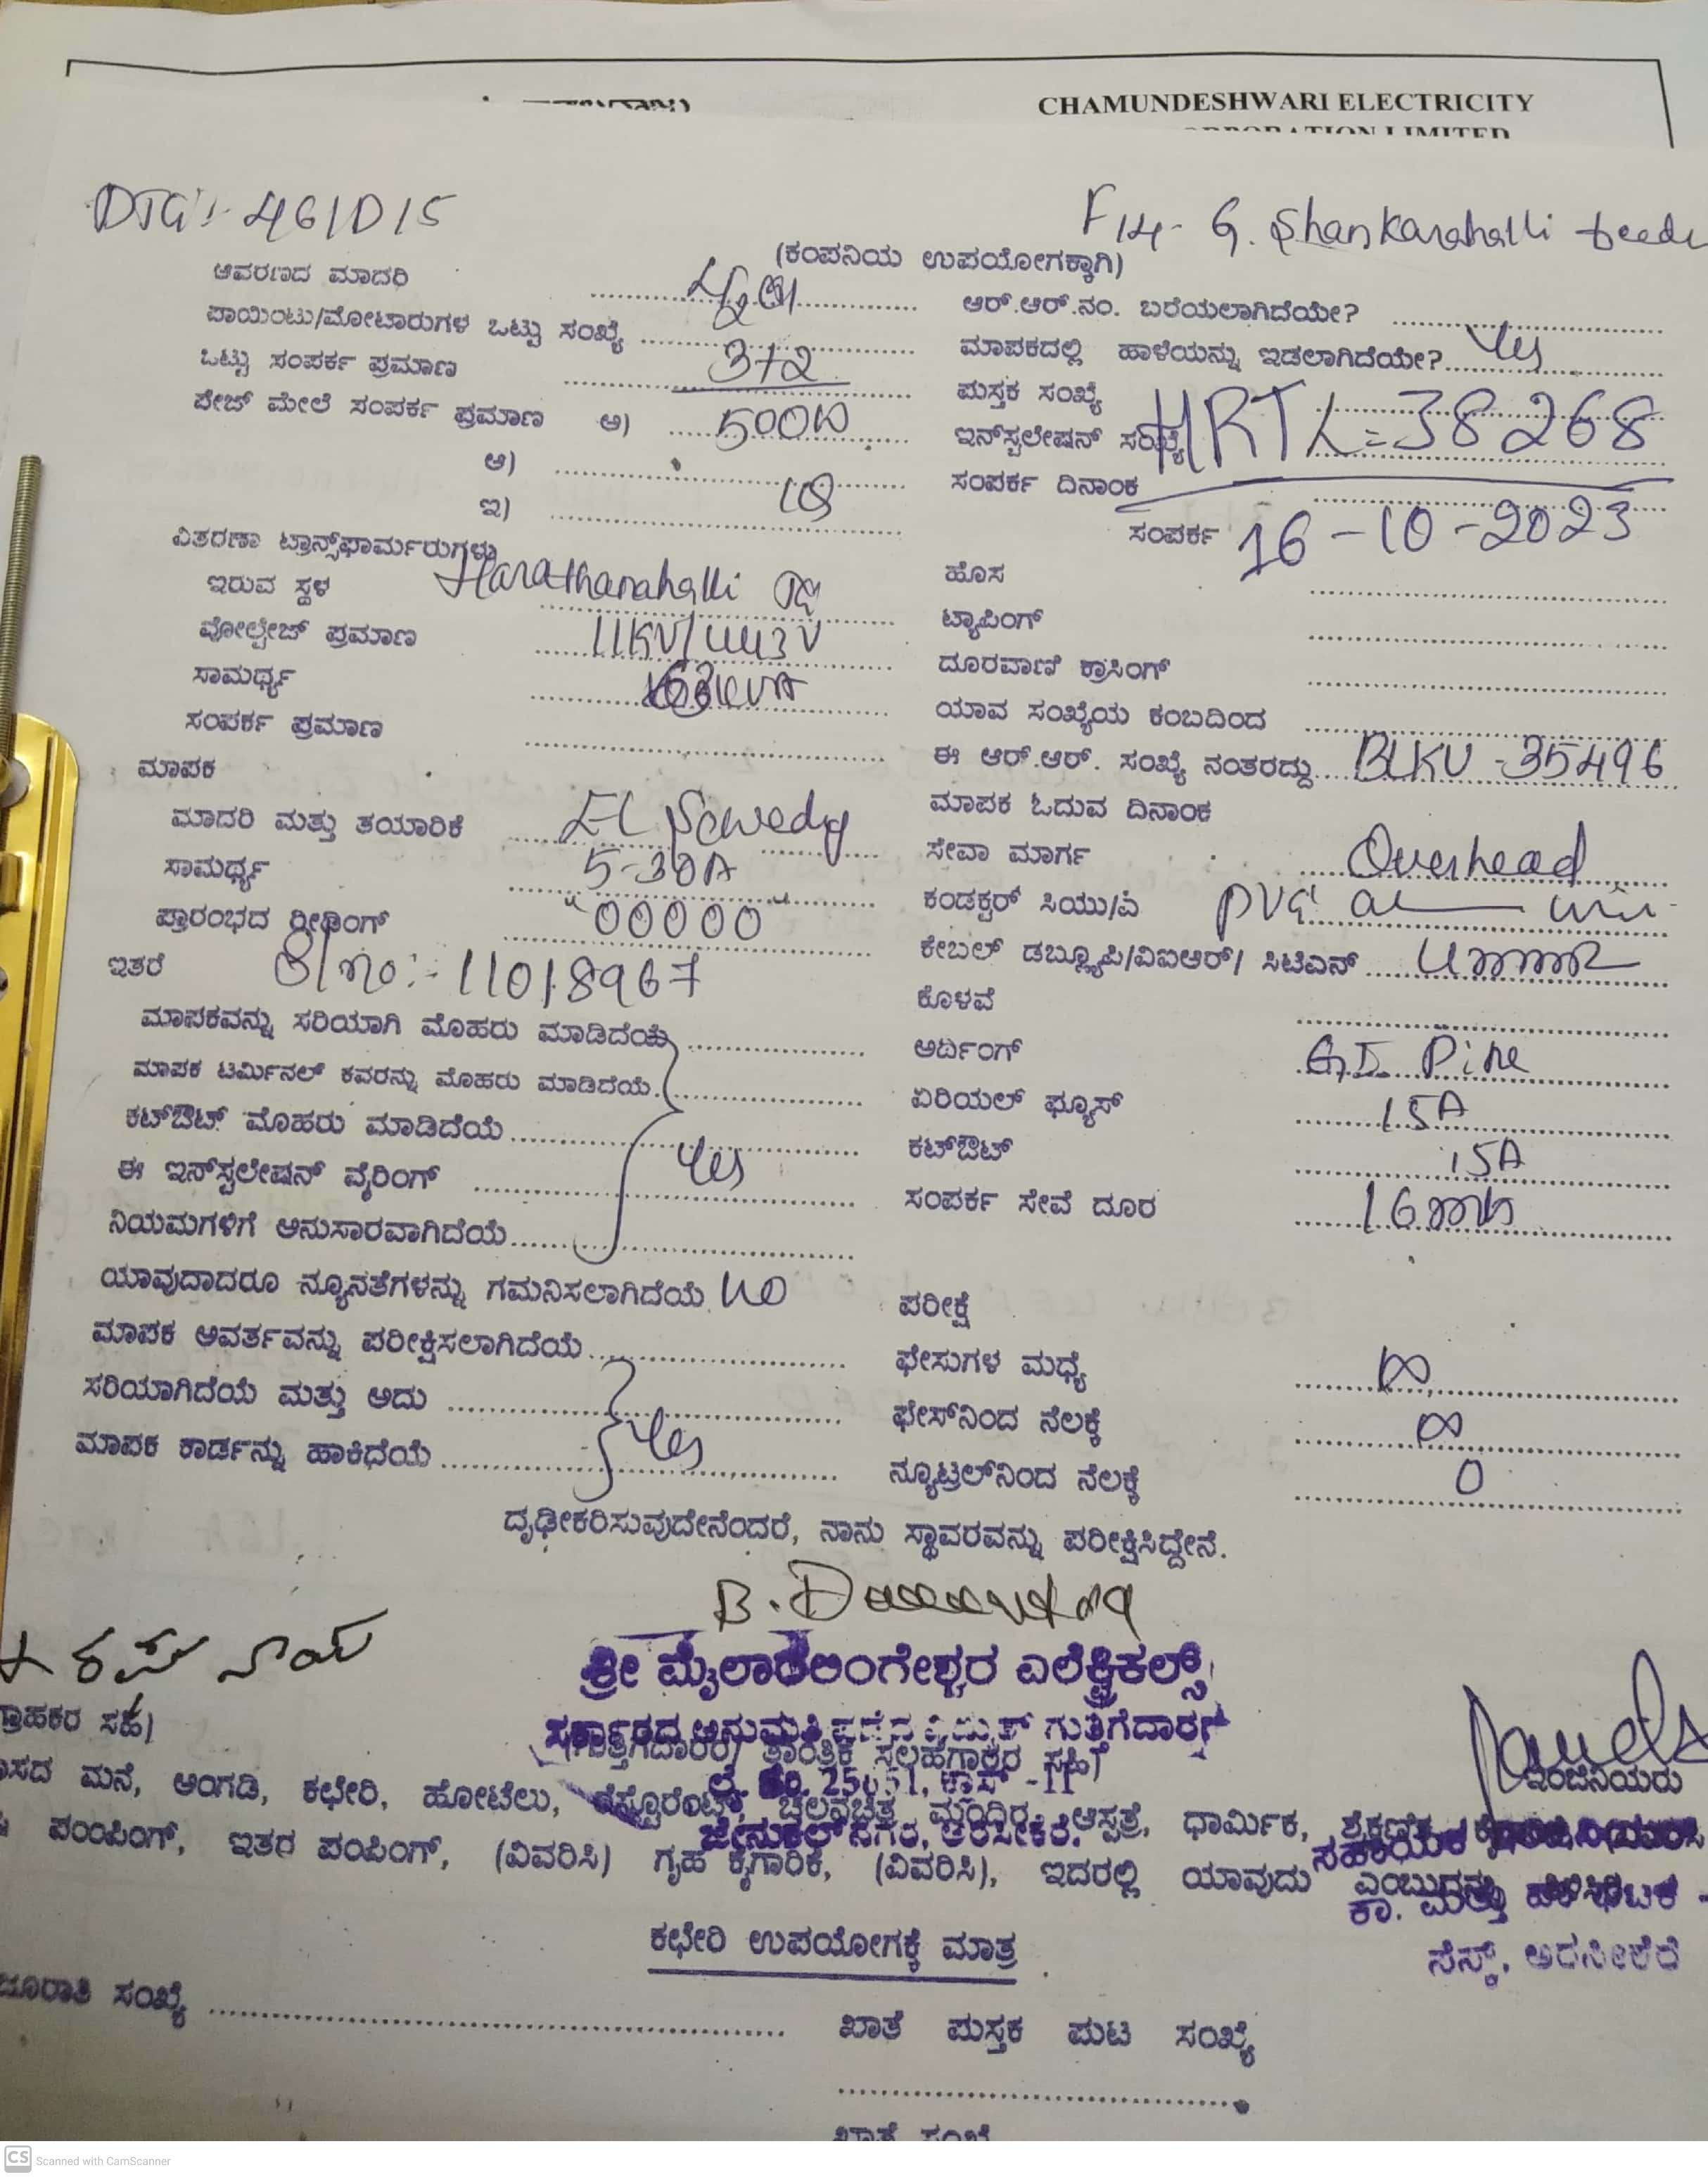 CHAMUNDESHWARI ELECTRICITY
CORPORATION LIMITED
DTC:- 461D15
F14- G. Shankarahalli feeder
(ಕಂಪನಿಯ ಉಪಯೋಗಕ್ಕಾಗಿ)
ಆವರಣದ ಮಾದರಿ
ಆರ್.ಆರ್.ನಂ. ಬರೆಯಲಾಗಿದೆಯೇ?
ಪಾಯಿಂಟು/ಮೋಟಾರುಗಳ ಒಟ್ಟು ಸಂಖ್ಯೆ 3+2
ಮಾಪಕದಲ್ಲಿ ಹಾಳೆಯನ್ನು ಇಡಲಾಗಿದೆಯೇ? Yes
ಒಟ್ಟು ಸಂಪರ್ಕ ಪ್ರಮಾಣ
ಪುಸ್ತಕ ಸಂಖ್ಯೆ
ಪೇಜ್ ಮೇಲೆ ಸಂಪರ್ಕ ಪ್ರಮಾಣ ಅ) 500W
ಇನ್‌ಸ್ಟಲೇಷನ್ ಸಂಖ್ಯೆ HRTL=38268
ಆ)
ಸಂಪರ್ಕ ದಿನಾಂಕ
ಇ) 1Φ
ಸಂಪರ್ಕ 16-10-2023
ವಿತರಣಾ ಟ್ರಾನ್ಸ್‌ಫಾರ್ಮರುಗಳು
ಹೊಸ
ಇರುವ ಸ್ಥಳ Harathanahalli
ಟ್ಯಾಪಿಂಗ್
ವೋಲ್ಟೇಜ್ ಪ್ರಮಾಣ 11KV/
ದೂರವಾಣಿ ಕ್ರಾಸಿಂಗ್
ಸಾಮರ್ಥ್ಯ 63KVA
ಯಾವ ಸಂಖ್ಯೆಯ ಕಂಬದಿಂದ
ಸಂಪರ್ಕ ಪ್ರಮಾಣ
ಈ ಆರ್.ಆರ್. ಸಂಖ್ಯೆ ನಂತರದ್ದು BLKU-35496
ಮಾಪಕ
ಮಾಪಕ ಓದುವ ದಿನಾಂಕ
ಮಾದರಿ ಮತ್ತು ತಯಾರಿಕೆ EL Sewedy
ಸೇವಾ ಮಾರ್ಗ Overhead
ಸಾಮರ್ಥ್ಯ 5-30A
ಕಂಡಕ್ಟರ್ ಸಿಯು/ಎ PVC
ಪ್ರಾರಂಭದ ರೀಡಿಂಗ್ "00000"
ಕೇಬಲ್ ಡಬ್ಲ್ಯೂಪಿ/ವಿಐಆರ್/ ಸಿಟಿಎನ್
ಇತರೆ Sl no:- 11018967
ಕೊಳವೆ
ಮಾಪಕವನ್ನು ಸರಿಯಾಗಿ ಮೊಹರು ಮಾಡಿದೆಯೆ
ಅರ್ಥಿಂಗ್ G.I. Pipe
ಮಾಪಕ ಟರ್ಮಿನಲ್ ಕವರನ್ನು ಮೊಹರು ಮಾಡಿದೆಯೆ.
ಏರಿಯಲ್ ಫ್ಯೂಸ್ 15A
ಕಟ್‌ಔಟ್ ಮೊಹರು ಮಾಡಿದೆಯೆ
ಕಟ್‌ಔಟ್ 15A
ಈ ಇನ್‌ಸ್ಟಲೇಷನ್ ವೈರಿಂಗ್ Yes
ಸಂಪರ್ಕ ಸೇವೆ ದೂರ
ನಿಯಮಗಳಿಗೆ ಅನುಸಾರವಾಗಿದೆಯೆ
ಯಾವುದಾದರೂ ನ್ಯೂನತೆಗಳನ್ನು ಗಮನಿಸಲಾಗಿದೆಯೆ. NO
ಪರೀಕ್ಷೆ
ಮಾಪಕ ಆವರ್ತವನ್ನು ಪರೀಕ್ಷಿಸಲಾಗಿದೆಯೆ
ಫೇಸುಗಳ ಮಧ್ಯೆ ∞
ಸರಿಯಾಗಿದೆಯೆ ಮತ್ತು ಅದು Yes
ಫೇಸ್‌ನಿಂದ ನೆಲಕ್ಕೆ ∞
ಮಾಪಕ ಕಾರ್ಡನ್ನು ಹಾಕಿದೆಯೆ
ನ್ಯೂಟ್ರಲ್‌ನಿಂದ ನೆಲಕ್ಕೆ 0
ದೃಢೀಕರಿಸುವುದೇನೆಂದರೆ, ನಾನು ಸ್ಥಾವರವನ್ನು ಪರೀಕ್ಷಿಸಿದ್ದೇನೆ.
ಶ್ರೀ ಮೈಲಾರಲಿಂಗೇಶ್ವರ ಎಲೆಕ್ಟ್ರಿಕಲ್ಸ್
ಗ್ರಾಹಕರ ಸಹಿ)
ಸರ್ಕಾರದ ಅನುಮತಿ ಪಡೆದ ವಿದ್ಯುತ್ ಗುತ್ತಿಗೆದಾರರು
(ಗುತ್ತಿಗೆದಾರರ) ತಾಂತ್ರಿಕ ಸಲಹೆಗಾರರ ಸಹಿ)
ಇಂಜಿನಿಯರು
ಮನೆ, ಅಂಗಡಿ, ಕಛೇರಿ, ಹೋಟೆಲು, ರೆಸ್ಟೊರೆಂಟ್, ಚಲನಚಿತ್ರ ಮಂದಿರ, ಆಸ್ಪತ್ರೆ, ಧಾರ್ಮಿಕ, ಶೈಕ್ಷಣಿಕ
ಜೇನುಕಲ್ ನಗರ, ಅರಸೀಕೆರೆ.
ಸಹಾಯಕ
ಪಂಪಿಂಗ್, ಇತರ ಪಂಪಿಂಗ್, (ವಿವರಿಸಿ) ಗೃಹ ಕೈಗಾರಿಕೆ, (ವಿವರಿಸಿ), ಇದರಲ್ಲಿ ಯಾವುದು ಎಂಬುದನ್ನು ತಿಳಿಸಿರಿ
ಕಾ. ಮತ್ತು ಪಾ ಘಟಕ
ಕಛೇರಿ ಉಪಯೋಗಕ್ಕೆ ಮಾತ್ರ
ಸೆಸ್ಕ್, ಅರಸೀಕೆರೆ
ಸಂಖ್ಯೆ
ಖಾತೆ ಪುಸ್ತಕ ಪುಟ ಸಂಖ್ಯೆ
ಖಾತೆ ಸಂಖ್ಯೆ
CS Scanned with CamScanner